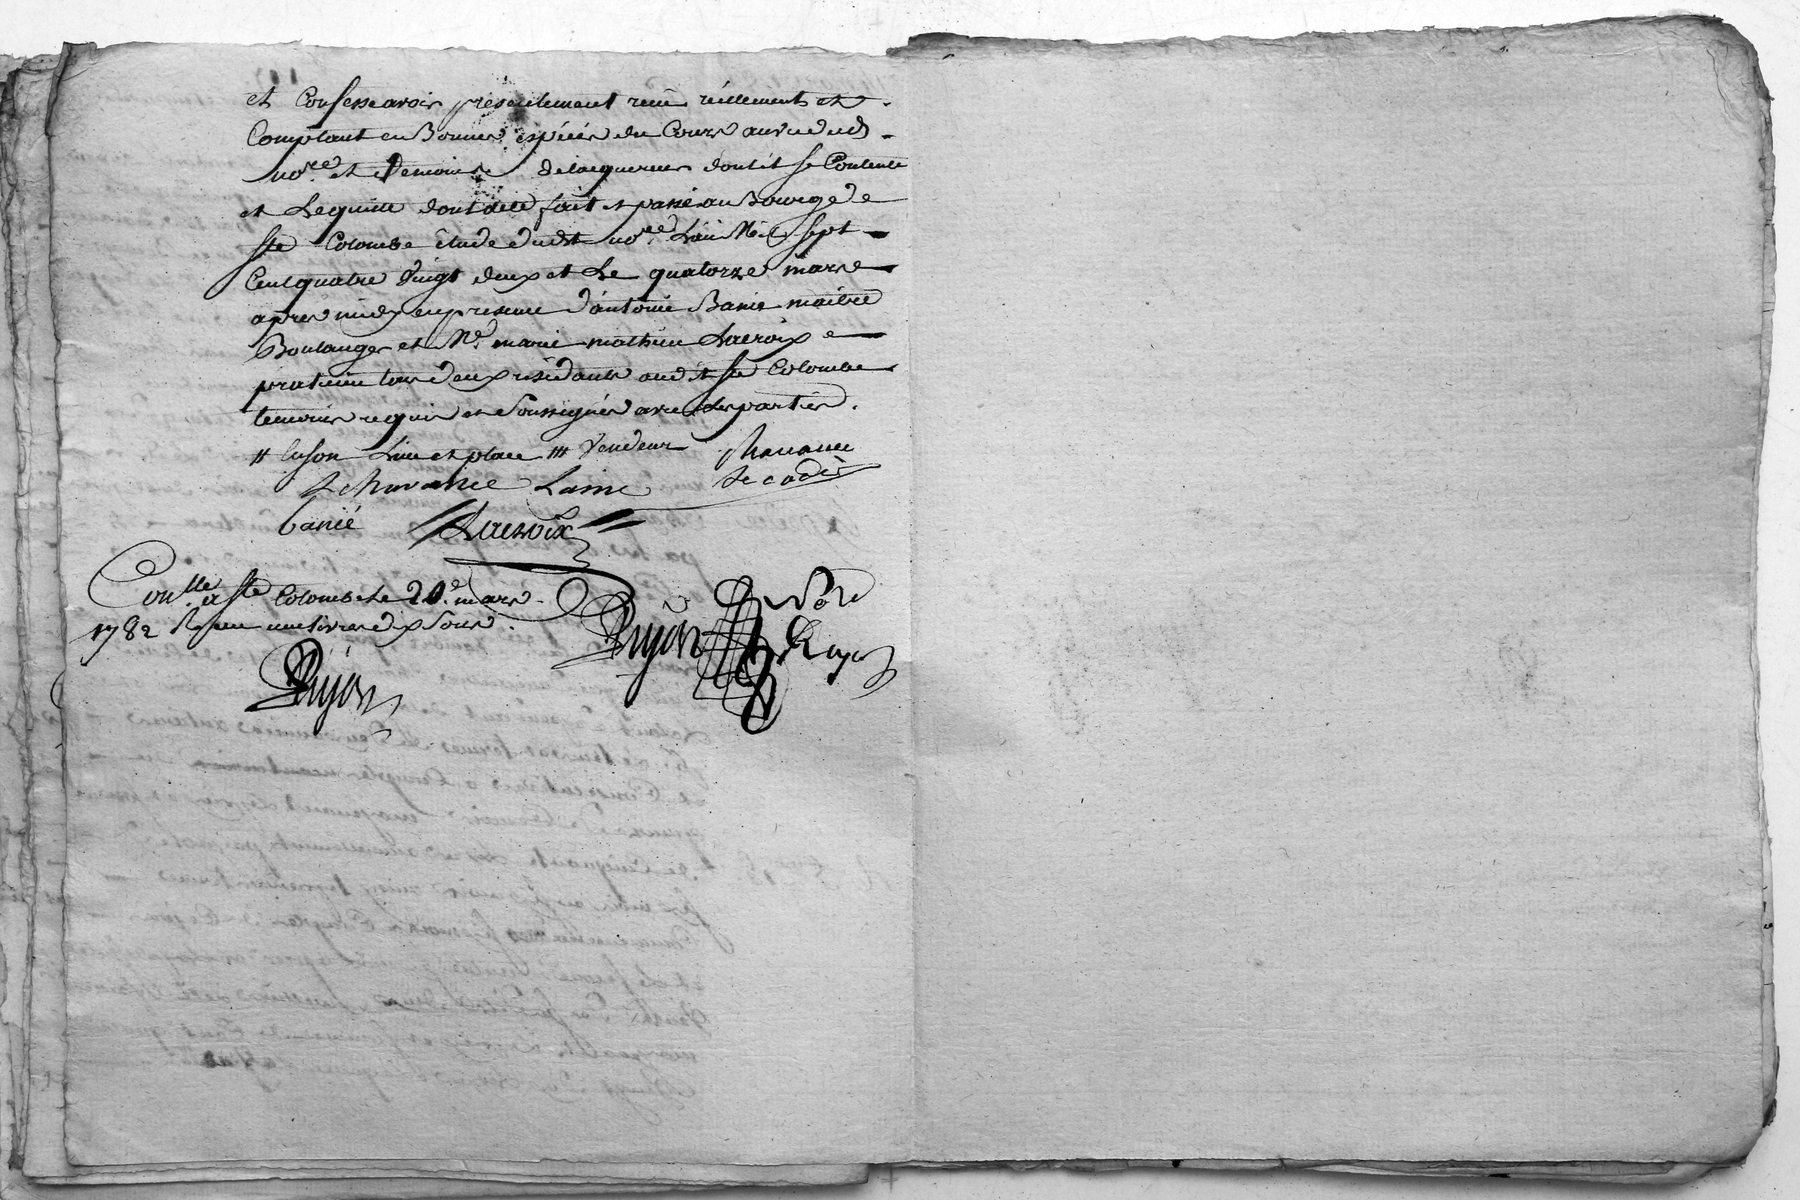 et Confesse avoir presentement reçu réellement et
Comptant en Bonnes espéces du Cours au vu dud
nore et temoins de laquelle dont il se Contente
et Lequitte dont acte fait et passé au Bourg de
Ste Colombe étude dudit nore L'an Mil sept
Cent quatre vingt deux et Le quatorze mars
apres midy en presence d'antoine Banie maitre
Boulanger et Sr marie mathieu Lacroix
praticien tous deux residants aud it Ste Colombe
temoins requis et Soussignés avec les parties.
// en son Lieu et place /// Vendeur Chavance
Le cadet
Chavance Laine
banié Lacroix
Conlle a Ste Colombe le 20e mars
1782 Reçu une livre dix Sous
Pujon Nore Royal
Pujon